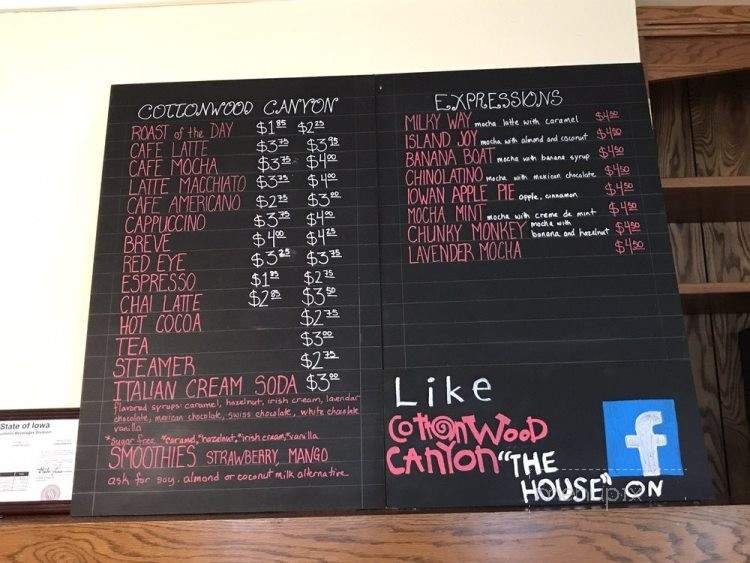 COTTONWOOD CANYON
ROAST of the DAY $1.85 $2.25
CAFE LATTE $3.75 $3.95
CAFE MOCHA $3.75 $4.00
LATTE MACCHIATO $3.75 $4.00
CAFE AMERICANO $2.75 $3.00
CAPPUCCINO $4.00
BREVE $4.00 $4.25
RED EYE $3.25 $3.75
ESPRESSO $2.75
CHAI LATTE $3.50
HOT COCOA $2.75
TEA $3.00
STEAMER
ITALIAN CREAM SODA $3.00
flavored syrups: caramel, hazelnut, irish cream, lavendar
chocolate, mexican chocolate, swiss chocolate, white chocolate
vanilla
*Sugar free *caramel, *hazelnut, *irish cream, *vanilla
SMOOTHIES STRAWBERRY MANGO
ask for soy, almond or coconut milk alternative
EXPRESSIONS
MILKY WAY mocha latte with caramel $4.50
ISLAND JOY mocha with almond and coconut $4.50
BANANA BOAT mocha with banana syrup $4.50
CHINOLATINO mocha with mexican chocolate $4.50
IOWAN APPLE PIE apple, cinnamon $4.50
MOCHA MINT mocha with creme de mint $4.50
CHUNKY MONKEY mocha with banana and hazelnut $4.50
LAVENDER MOCHA $4.50
Like
CottonWooD
CANYON "THE
HOUSE" ON
f
State of Iowa